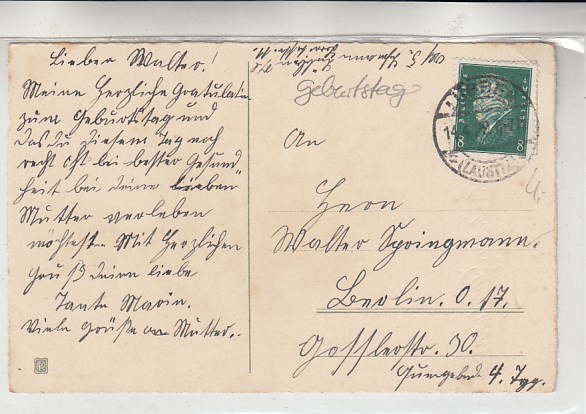 Lieber Walter!
Meine Herzliche Gratulation
zum Geburtstag und
das du diesem Tag noch
recht oft bei bester Gesund
heit bei deine lieben
Mutter verleben
möchtest. Mit Herzlichen
Gruß deine liebe
Tante Marin.
Viele Grüße an Mutter.
Geburtstag
An
Herrn
Walter Springmann.
Berlin. O. 17.
Gosslerstr. 30.
4. Tg.
8 8
(LAUSITZ)